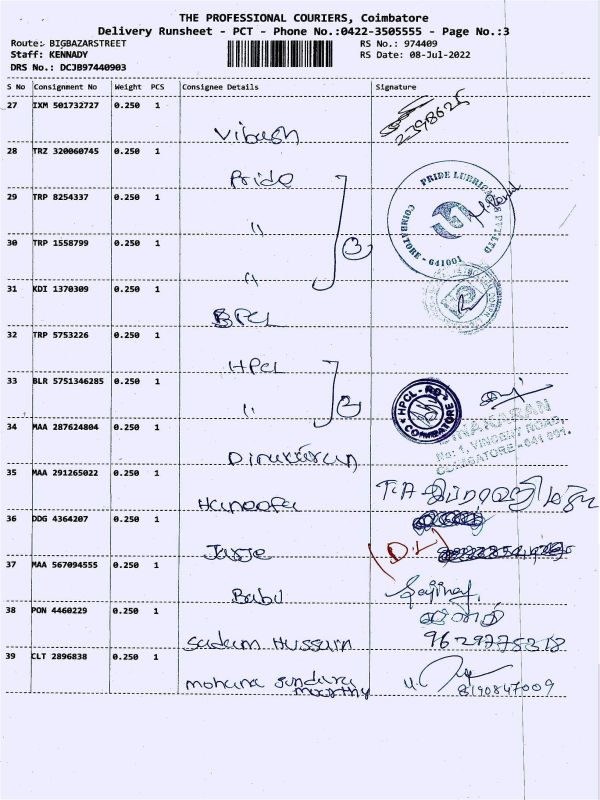 THE PROFESSIONAL COURIERS, Coimbatore
Delivery Runsheet - PCT - Phone No.:0422-3505555 - Page No.:3
Route: BIGBAZARSTREET RS No.: 974409
Staff: KENNADY RS Date: 08-Jul-2022
DRS No.: DCJB97440903
S No Consignment No Weight PCS Consignee Details Signature
27 IXM 501732727 0.250 1
Vibash 2398625
28 TRZ 320060745 0.250 1
Pride
PRIDE LUBRICANTS PVT LTD
COIMBATORE - 641001
29 TRP 8254337 0.250 1
"
30 TRP 1558799 0.250 1
" 3
31 KDI 1370309 0.250 1
BPCL
32 TRP 5753226 0.250 1
HPCL
33 BLR 5751346285 0.250 1
" 2
HPCL-RO
COIMBATORE
34 MAA 287624804 0.250 1
DINAKARAN
No: 1, VINCENT ROAD,
COIMBATORE - 641 001.
35 MAA 291265022 0.250 1
Haneefa T.A
36 DDG 4364207 0.250 1
(DL)
37 MAA 567094555 0.250 1
Babu
38 PON 4460229 0.250 1
Sadam Hussain 9629775318
39 CLT 2896838 0.250 1
mohana sundara
moorthy 8190847009